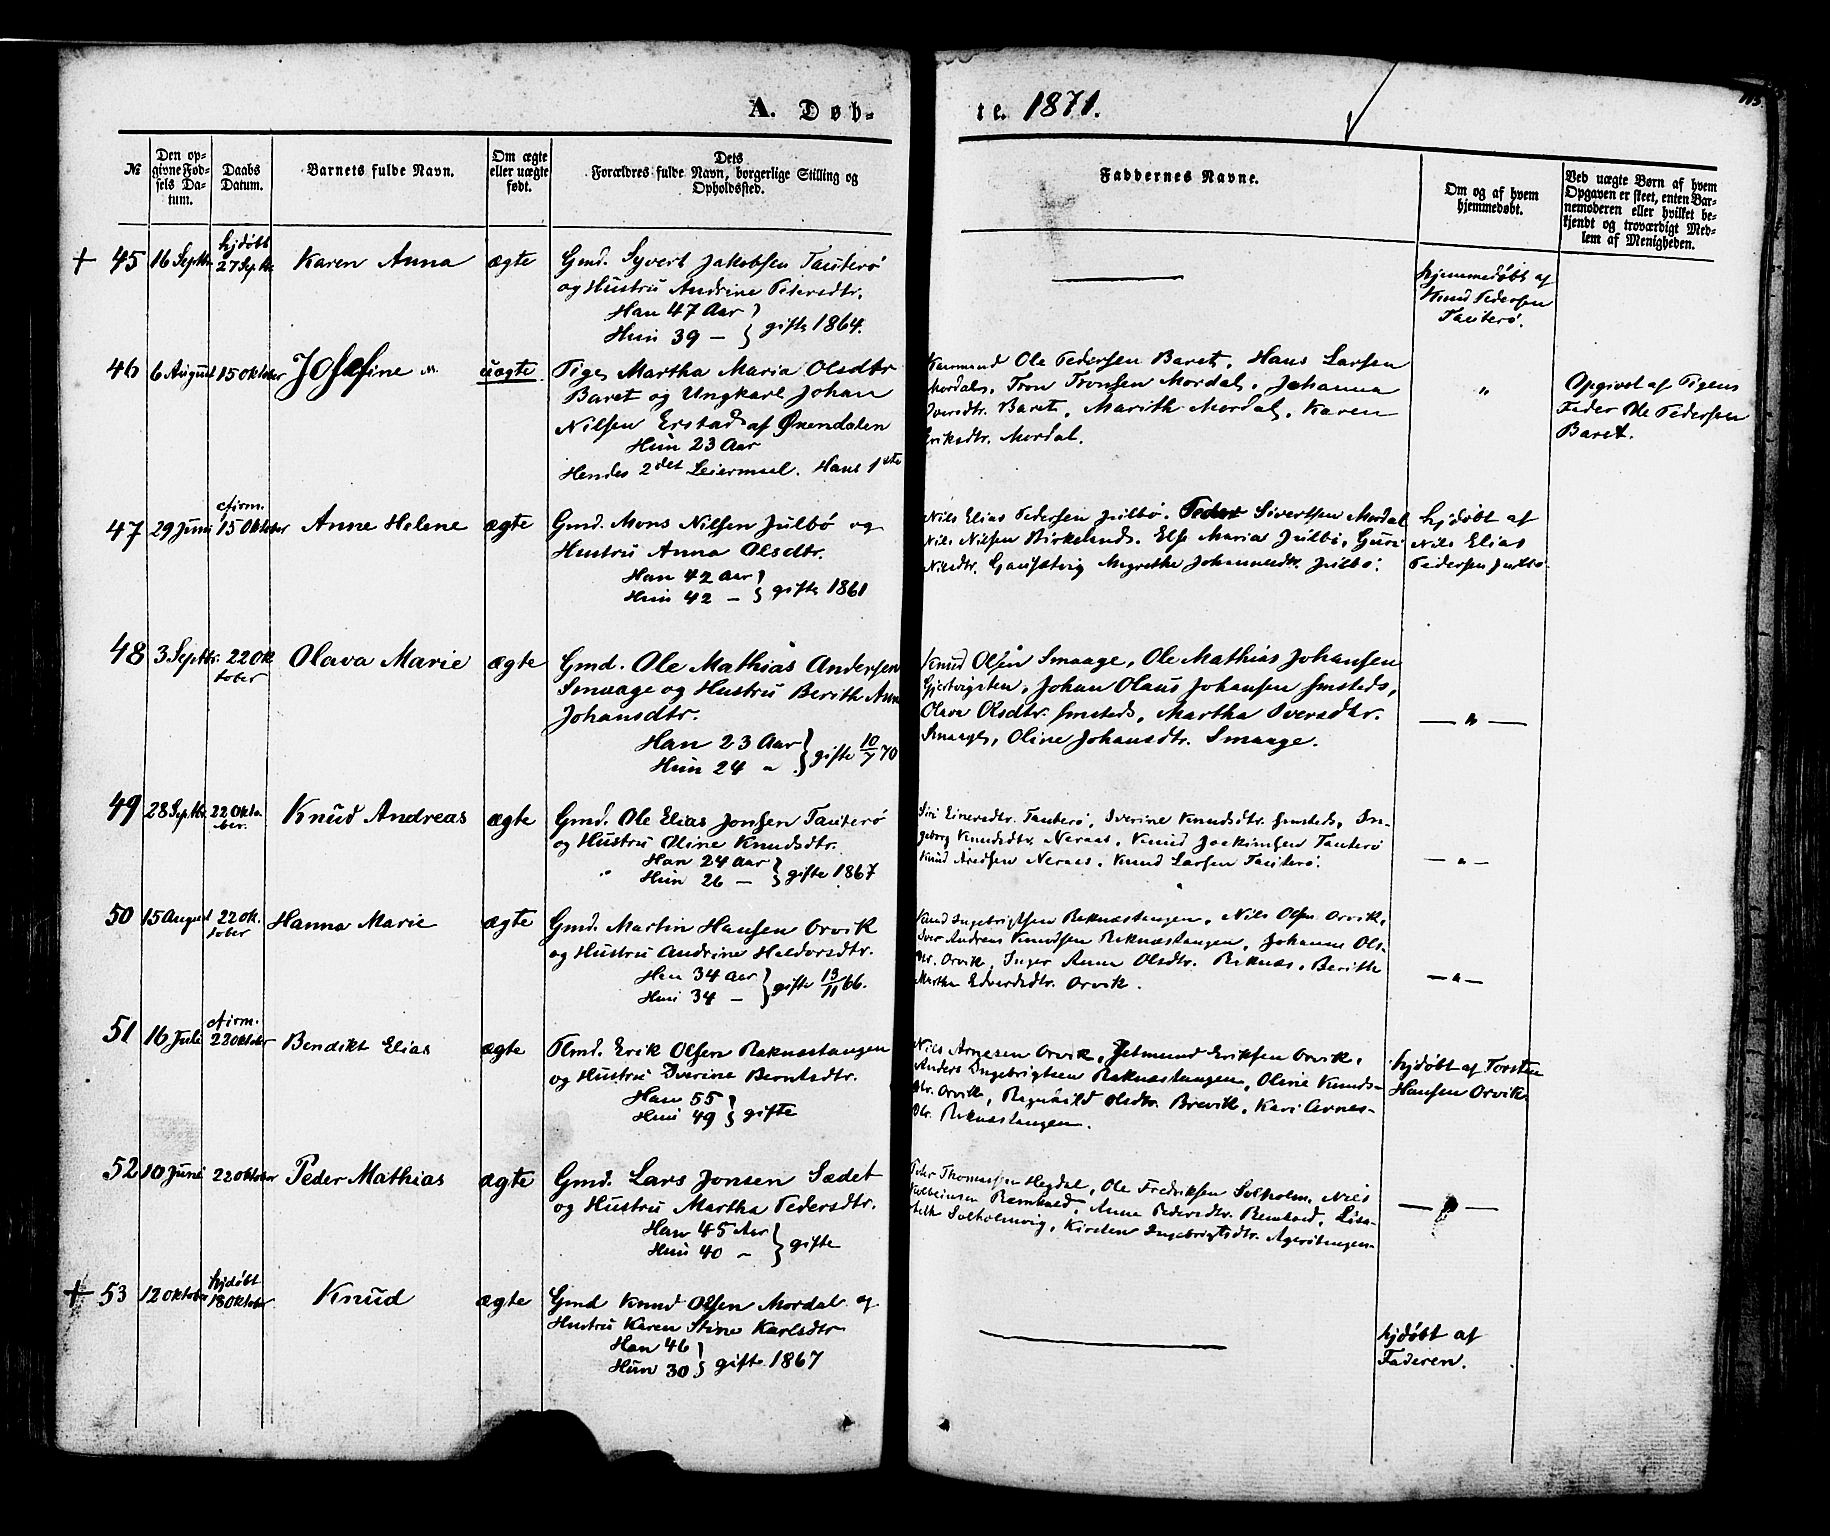 A. Døb-
te. 1871.
№
Den op-
givne Fød-
sels Da-
tum.
Daabs
Datum.
Barnets fulde Navn.
Om ægte
eller uægte
født.
Dets
Forældres fulde Navn, borgerlige Stilling og
Opholdssted.
Faddernes Navne.
Om og af hvem
hjemmedøbt.
Ved uægte Børn af hvem
Opgaven er skeet, enten Bar-
nemoderen eller hvilket be-
kjendt og troværdigt Med-
lem af Menigheden.
+ 45
16 Septbr
hjdøbt
27 Septbr
Karen Anna
ægte
Gmd. Syvert Jakobsen Tauterø
og Hustru Andrine Pedersdtr.
Han 47 Aar
Hun 39 — } gifte 1864.
hjemmedøbt af
Knud Pedersen
Tauterø.
46
6 August
15 Oktober
Josefine
uægte
Pige Martha Maria Olsdtr
Baret og Ungkarl Johan
Nilsen Erstad af Øxendalen
Hun 23 Aar
Hendes 2det Leiermaal. Hans 1ste
Kaarmand Ole Pedersen Baret, Hans Larsen
Mordal, Tron Tronsen Mordal, Johanna
Iversdtr. Baret, Marith Mordal, Karen
Eriksdtr. Mordal.
"
Opgivet af Pigens
Fader Ole Pedersen
Baret.
47
29 Juni
Afirm.
15 Oktober
Anne Helene
ægte
Gmd. Mons Nilsen Julbø og
Hustru Anna Olsdtr.
Han 42 Aar
Hun 42 — } gifte 1861
Nils Elias Pedersen Julbø. Peder Sivertsen Mordal
Nils Nilsen Birkelands. Else Maria Julbø, Guri
Nilsdtr. Gausætvig Margrethe Johannesdtr. Julbø.
hjdøbt af
Nils Elias
Pedersen Julbø.
48
3 Septbr.
22 Ok
tober
Olava Marie
ægte
Gmd. Ole Mathias Andersen
Smaage og Hustru Berith Anna
Johansdtr.
Han 23 Aar
Hun 24 " } gifte 10/7 70
Knud Olsen Smaage, Ole Mathias Johansen
Johan Olaus Johansen
Olava Olsdtr. Martha Iversdtr.
Smaage, Oline Johansdtr. Smaage.
— " —
49
28 Septbr.
22 Okto-
ber.
Knud Andreas
ægte
Gmd. Ole Elias Jonsen Tauterø
og Hustru Oline Knudsdtr.
Han 24 Aar
Hun 26 — } gifte 1867
Siri Einersdtr. Tauterø, Iverine Knudsdtr. In-
geborg Knudsdtr. Neraas, Knud Joakimsen Tauterø
Knud Neraas, Knud Larsen Tauterø.
— " —
50
15 August
22 Ok.
tober
Hanna Marie
ægte
Gmd. Martin Hansen Orvik
og Hustru Andrine Haldorsdtr.
Han 34 Aar
Hun 34 — } gifte 13/11 66.
Knud Ingebrigtsen Reknæstangen, Nils Olsen Orvik,
Iver Andreas Knudsen Reknæstangen, Johanne Ols-
dtr. Orvik, Inger Anna Olsdtr. Reknæs, Berith
Martha Edvardsdtr. Orvik.
— " —
51
16 Juli
Afirm.
22 Oktober
Bendikt Elias
ægte
Plmd. Erik Olsen Reknæstangen
og Hustru Iverine Berntsdtr.
Han 55
Hun 49 } gifte
Nils Arnesen Orvik, Jetmund Eriksen Orvik,
Anders Ingebrigtsen Reknæstangen, Oline Knuds-
dtr. Orvik, Ragnhild Olsdtr. Brevik, Kari Arnes-
dtr. Reknæstangen.
hjdøbt af Torsten
Hansen Orvik.
52
10 Juni
22 Oktober
Peder Mathias
ægte
Gmd. Lars Jonsen Sædet
og Hustru Martha Pedersdtr.
Han 45 Aar
Hun 40 " } gifte
Peder Thomassen Hegdal, Ole Fredriksen Solholm, Nils
Kolbeinsen Anne Pedersdtr. Lisa-
beth Solholmvig, Kirsten Ingebrigtsdtr.
— " —
+ 53
12 Oktober
hjdøbt
18 Oktober
Knud
ægte
Gmd Knud Olsen Mordal og
Hustru Karen Stine Karlsdtr
Han 46
Hun 30 } gifte 1867
hjdøbt af
Faderen.